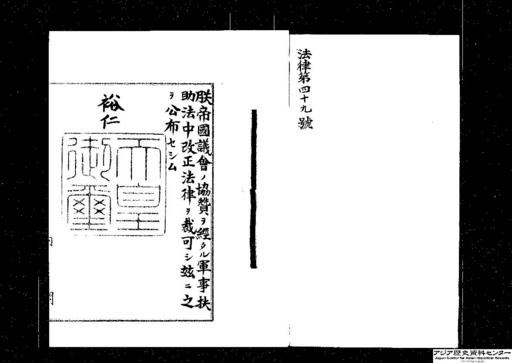 法律第四十九號
朕帝國議會ノ協贊ヲ經タル軍事扶
助法中改正法律ヲ裁可シ玆ニ之
ヲ公布セシム
裕仁
天皇
御璽
アジア歴史資料センター
Japan Center for Asian Historical Records